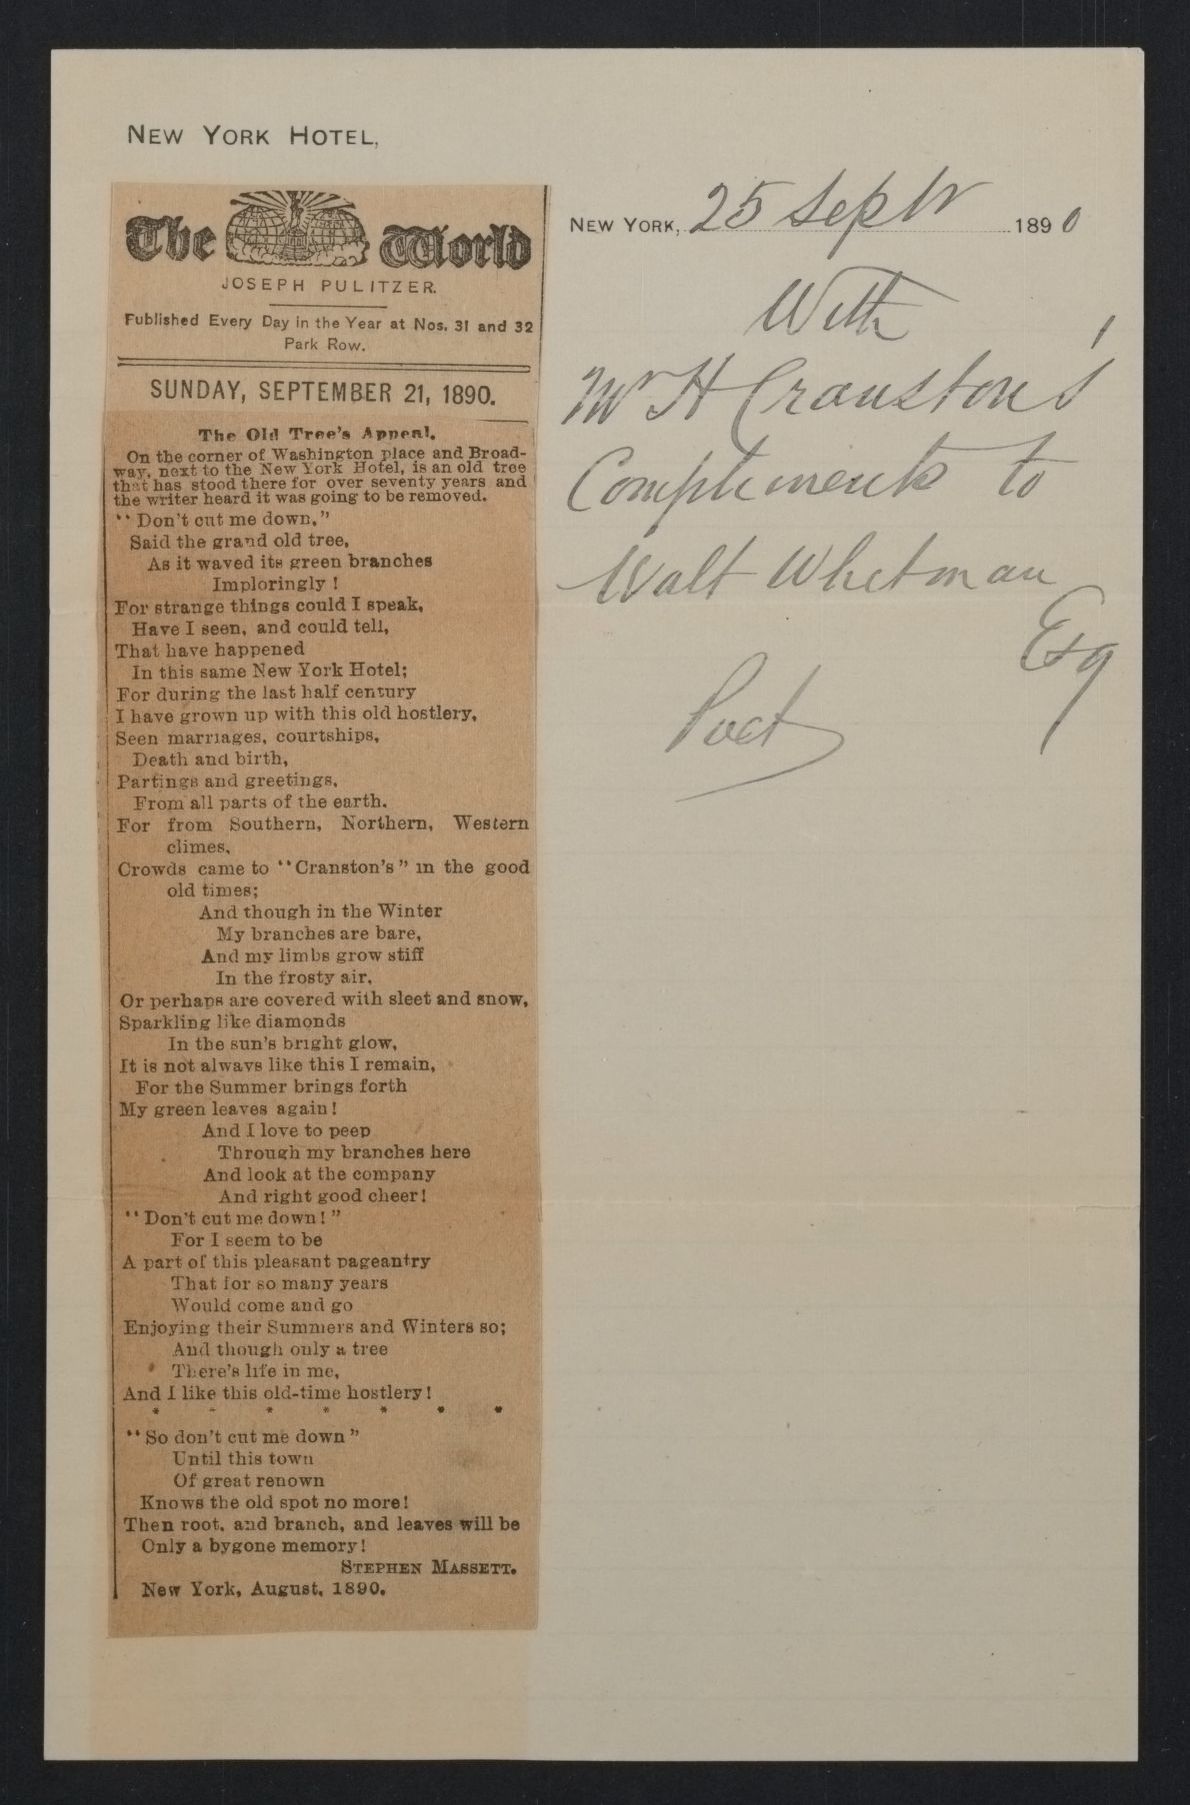 NEW YORK HOTEL,
The World
JOSEPH PULITZER.
Published Every Day in the Year at Nos. 31 and 32
Park Row.
SUNDAY, SEPTEMBER 21, 1890.
The Old Tree's Appeal.
On the corner of Washington place and Broad-
way, next to the New York Hotel, is an old tree
that has stood there for over seventy years and
the writer heard it was going to be removed.
"Don't cut me down,"
Said the grand old tree,
As it waved its green branches
Imploringly!
For strange things could I speak,
Have I seen, and could tell,
That have happened
In this same New York Hotel;
For during the last half century
I have grown up with this old hostlery,
Seen marriages, courtships,
Death and birth,
Partings and greetings,
From all parts of the earth.
For from Southern, Northern, Western
climes,
Crowds came to "Cranston's" in the good
old times;
And though in the Winter
My branches are bare,
And my limbs grow stiff
In the frosty air,
Or perhaps are covered with sleet and snow,
Sparkling like diamonds
In the sun's bright glow,
It is not always like this I remain,
For the Summer brings forth
My green leaves again!
And I love to peep
Through my branches here
And look at the company
And right good cheer!
"Don't cut me down!"
For I seem to be
A part of this pleasant pageantry
That for so many years
Would come and go
Enjoying their Summers and Winters so;
And though only a tree
There's life in me,
And I like this old-time hostlery!
* * * * * * *
"So don't cut me down"
Until this town
Of great renown
Knows the old spot no more!
Then root, and branch, and leaves will be
Only a bygone memory!
STEPHEN MASSETT.
New York, August, 1890.
NEW YORK, 25 Septr 1890
With
Mr H Cranston's
Compliments to
Walt Whitman
Esq
Poet